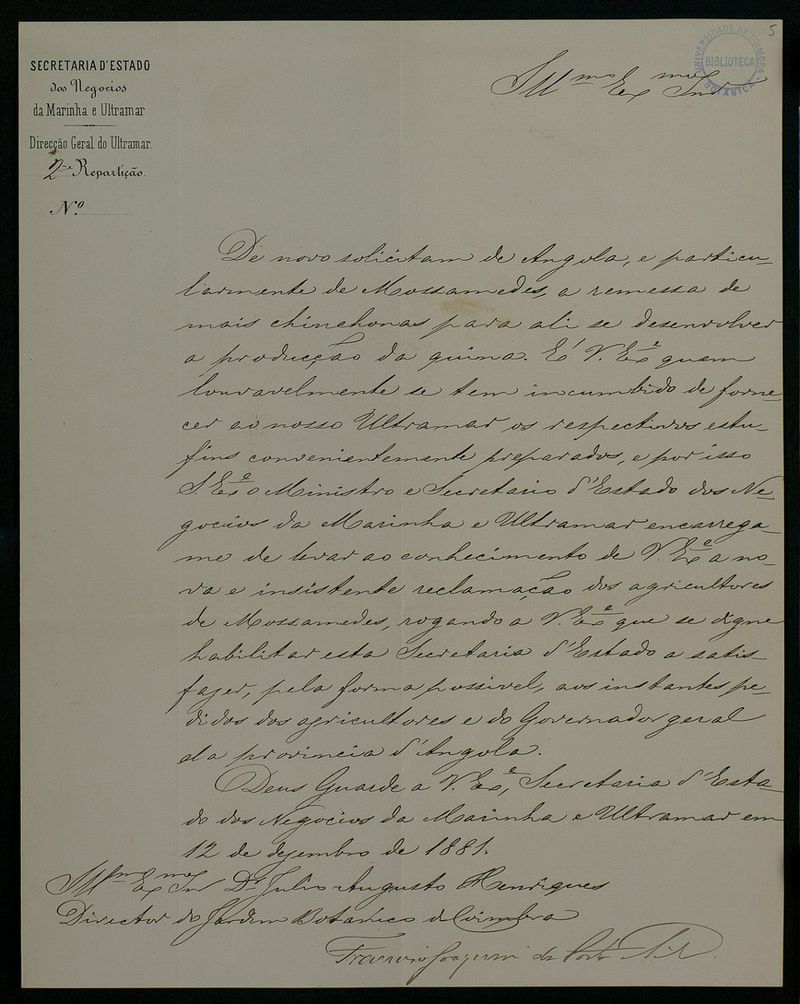 5
UNIVERSIDADE DE COIMBRA
BIBLIOTECA
BOTANICA
SECRETARIA D'ESTADO
dos Negocios
da Marinha e Ultramar
Direcção Geral do Ultramar.
2ª Repartição.
N.º
Illmo Exmo Snr
De novo solicitam de Angola, e particu-
larmente de Mossamedes, a remessa de
mais chinchonas para ali se desenvolver
a producção da quina. É V. Exª quem
louvavelmente se tem incumbido de forne-
cer ao nosso Ultramar os respectivos estu-
fins convenientemente preparados, e por isso
S. Exª o Ministro e Secretario d'Estado dos Ne-
gocios da Marinha e Ultramar encarrega-
me de levar ao conhecimento de V. Exª a no-
va e insistente reclamação dos agricultores
de Mossamedes, rogando a V. Exª que se digne
habilitar esta Secretaria d'Estado a satis-
fazer, pela forma possivel, aos instantes pe-
didos dos agricultores e do Governador geral
da provincia d'Angola.
Deus Guarde a V. Exª, Secretaria d'Esta-
do dos Negocios da Marinha e Ultramar em
12 de dezembro de 1881.
Illmo Exmo Snr Dr Julio Augusto Henriques
Director do Jardim Botanico de Coimbra
Francisco Joaquim da Costa e Silva